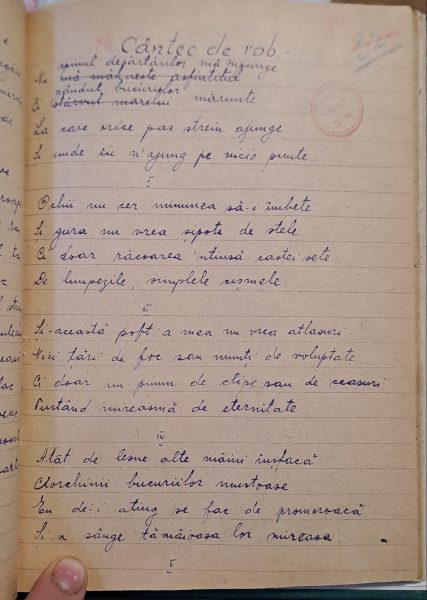 Cântec de rob.
somnul depărtărilor mă împunge
Nu mă mâhnește asfințitul
gândul bucuriilor
Ci stârvul marelui mărunte
La care orice pas strein ajunge
Și unde eu n'ajung pe nicio punte.
I
Ochii nu cer minunea să-i îmbete
Și gura nu vrea șipote de stele
Ci doar răcoarea 'ntinsă castei sete
De limpezile, simplele cișmele.
III
Și-această poft' a mea nu vrea atlasuri
Nici țări de foc sau munți de voluptate
Ci doar un pumn de clipe sau de ceasuri
Purtând mireasmă de eternitate.
IV
Atât de lesne alte mâini înșfacă
Ciorchinii bucuriilor mustoase
Eu de-i ating se fac de promoroacă
Și a sânge tămâioasa lor miroase.
V